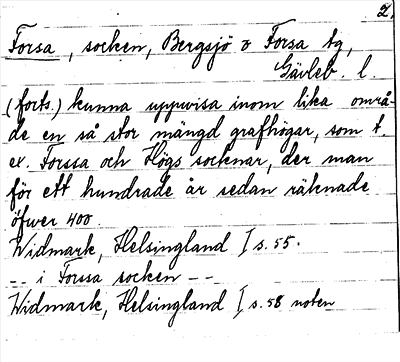 2.
Forsa, socken, Bergsjö o Forsa tg,
Gävleb. l.
(forts.) kunna uppwisa inom lika områ-
de en så stor mängd grafhögar, som t.
ex. Forssa och Högs socknar, der man
för ett hundrade år sedan räknade
öfwer 400
Widmark, Helsingland I s. 55.
-- i Forssa socken --
Widmark, Helsingland I s. 58 noten